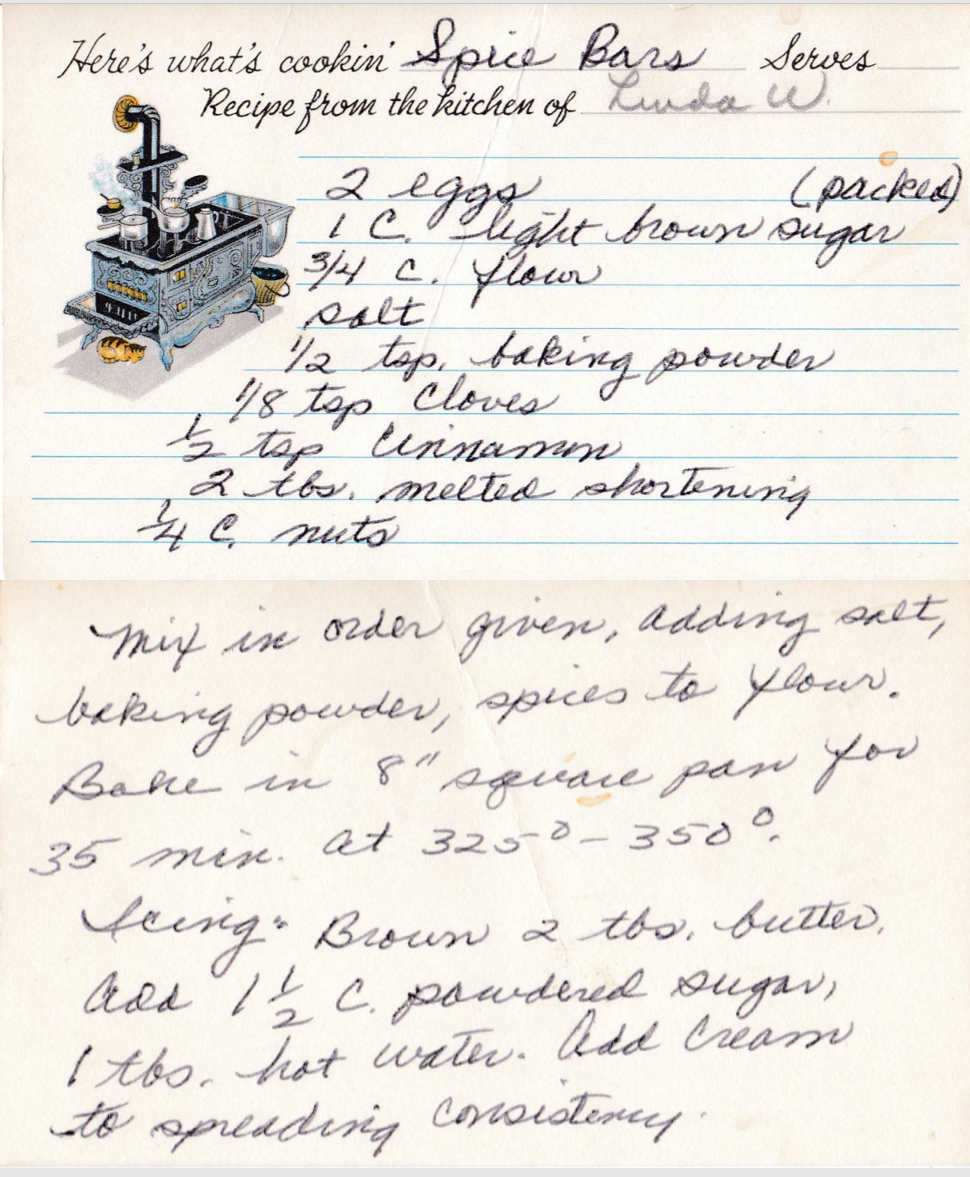 Here's what's cookin' Spice Bars Serves
Recipe from the kitchen of Linda W.
2 eggs (packed)
1 C. light brown sugar
3/4 C. flour
salt
1/2 tsp. baking powder
1/8 tsp Cloves
1/2 tsp Cinnamon
2 tbs. melted shortening
1/4 C. nuts
Mix in order given, adding salt,
baking powder, spices to flour.
Bake in 8" square pan for
35 min. at 325° - 350°.
Icing: Brown 2 tbs. butter.
Add 1 1/2 C. powdered sugar,
1 tbs. hot water. Add Cream
to spreading consistency.